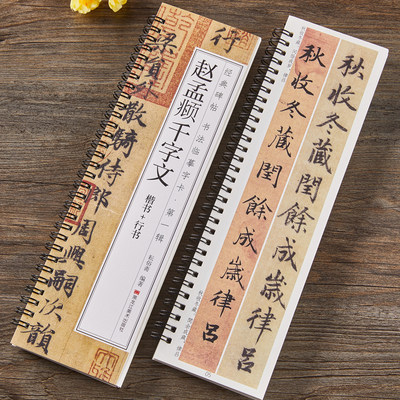 行
经典碑帖 书法临摹字卡·第一辑
赵孟頫千字文
楷书+行书
编著
黑龙江美术出版社
梁員外散騎侍郎周興嗣次韻
秋收冬藏閏餘成歲律呂
秋收冬藏閏餘成歲律呂